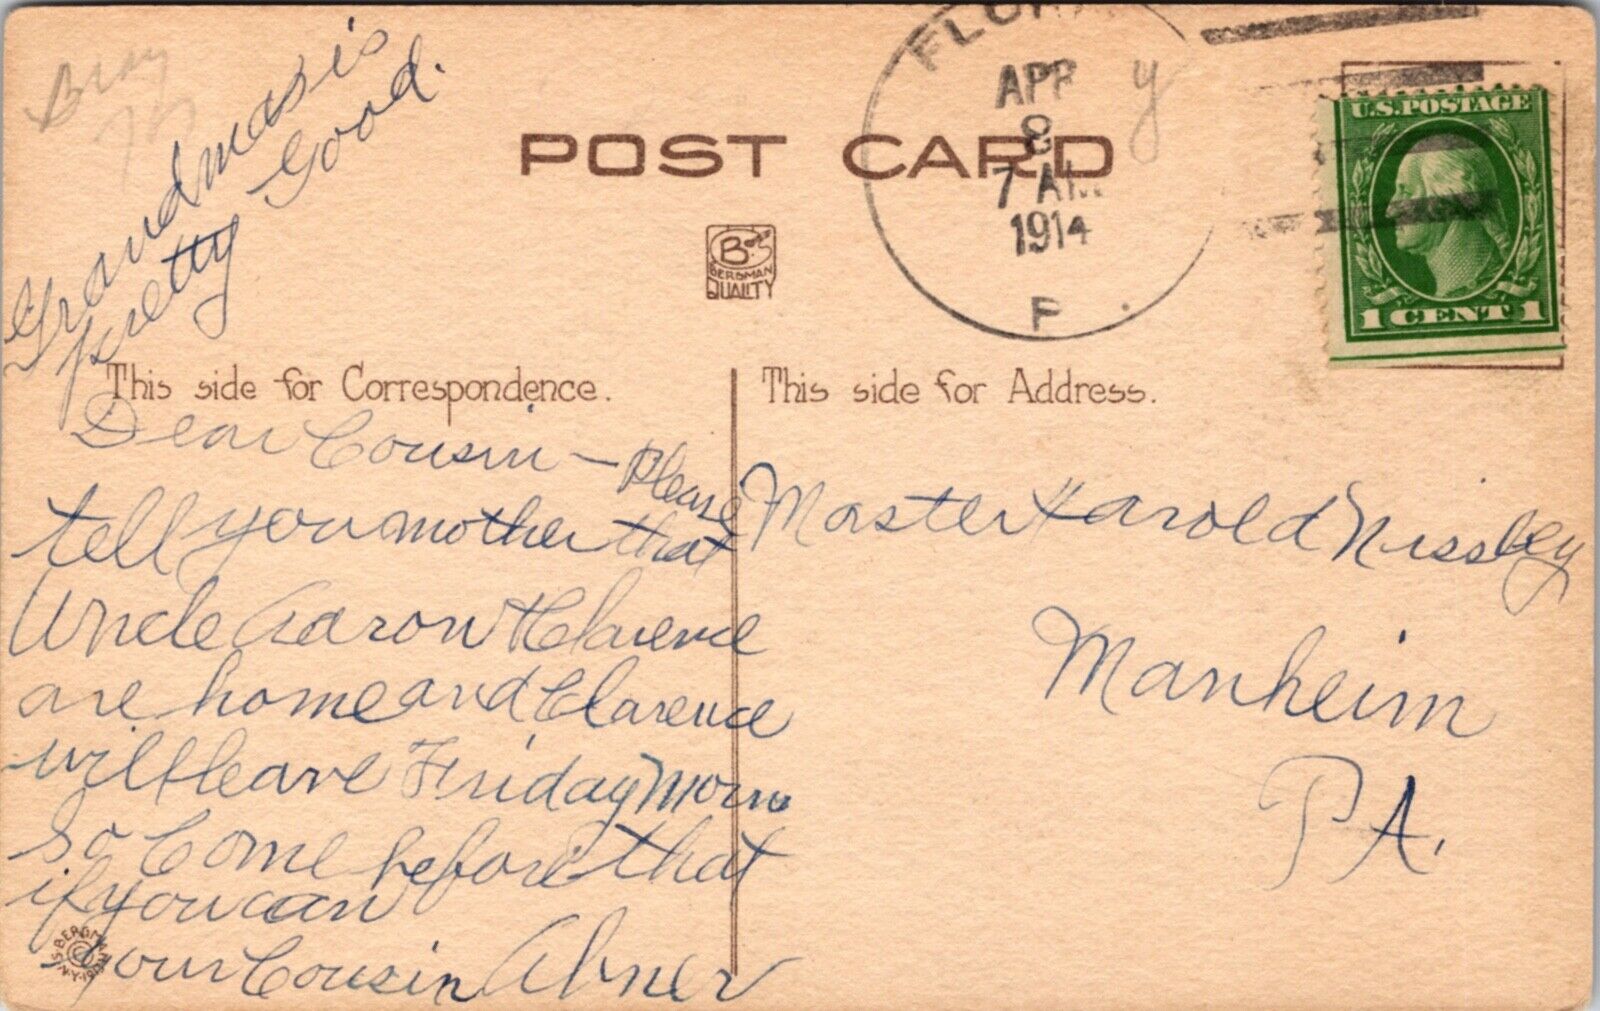 Grandma is
pretty Good.
POST CARD
FLOR
APR
8
7 AM
1914
P
U.S. POSTAGE
1 CENT 1
B
BERGMAN
QUALITY
This side for Correspondence.
This side for Address.
Dear Cousin – Please
tell you mother that
Uncle Aaron & Clarence
are home and Clarence
will leave Friday Morn
So Come before that
if you can
your Cousin Abner
Master Harold Nissley
Manheim
PA.